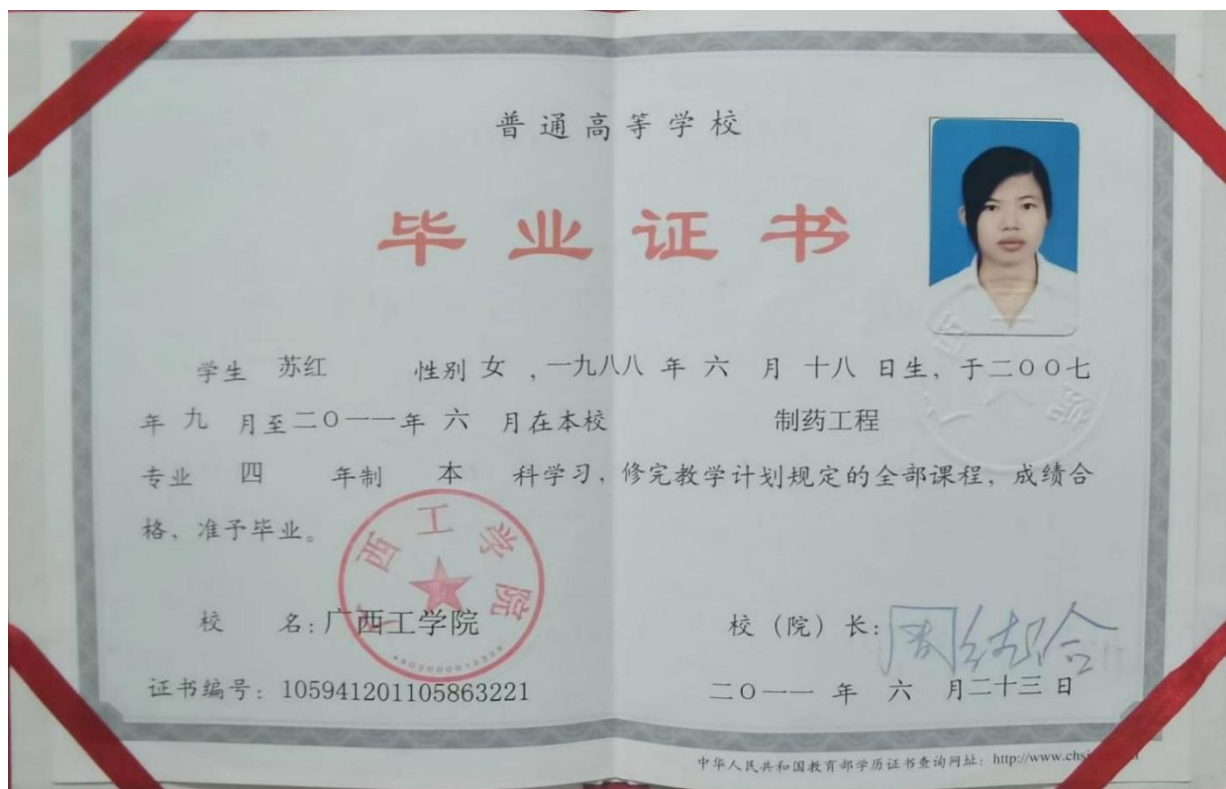 普通高等学校
毕业证书
学生 苏红 性别 女 ,一九八八 年 六 月 十八 日生, 于二〇〇七
年 九 月至二〇一一年 六 月在本校 制药工程
专业 四 年制 本 科学习, 修完教学计划规定的全部课程, 成绩合
格, 准予毕业。
广西工学院
校 名: 广西工学院
校(院)长: 
证书编号: 105941201105863221
二〇一一 年 六 月二十三 日
中华人民共和国教育部学历证书查询网址: http://www.chs